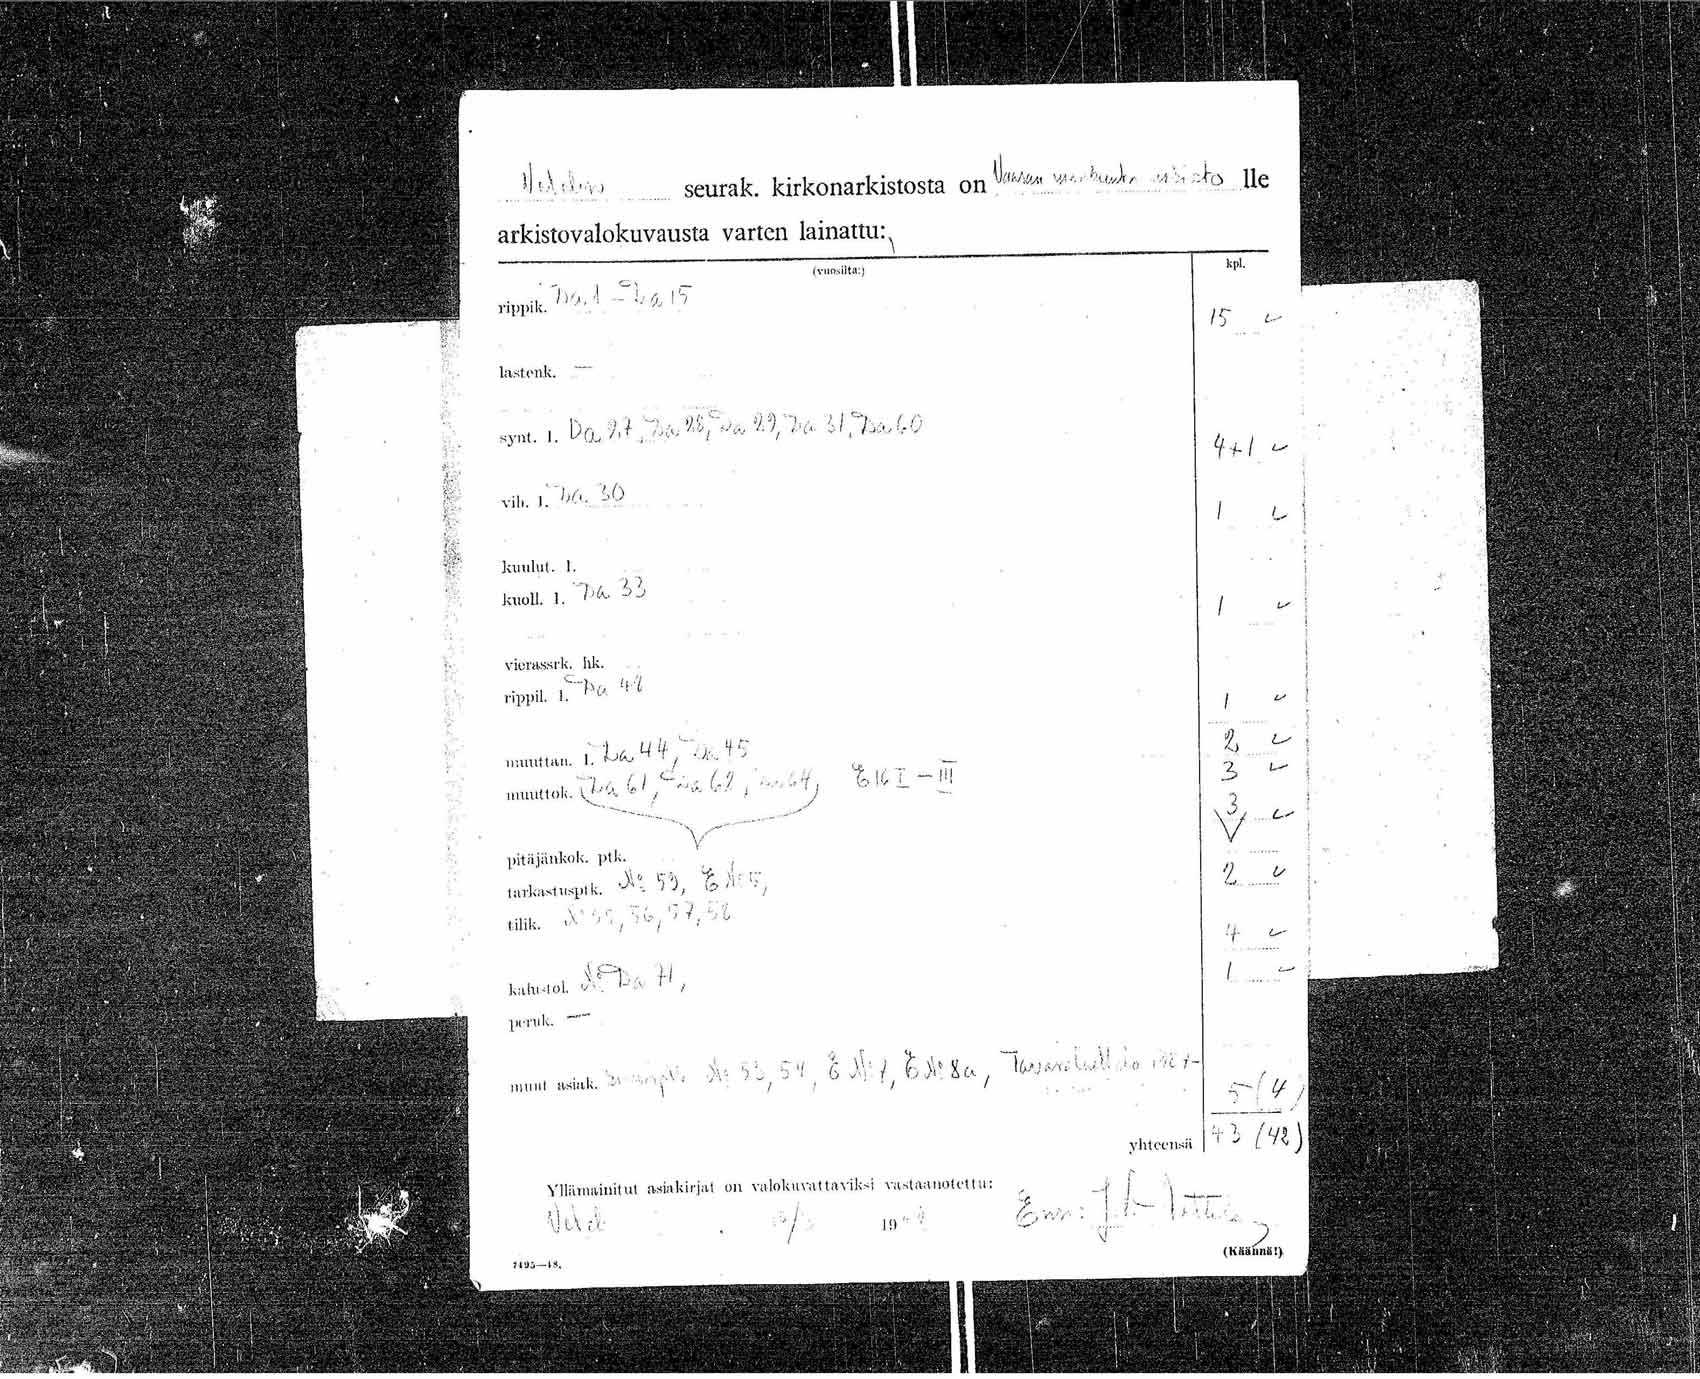 Vetelin seurak. kirkonarkistosta on Vaasan maakunta arkisto lle
arkistovalokuvausta varten lainattu:
(vuosilta:) kpl.
rippik. Da 1 – Da 15 15 ✓
lastenk. —
synt. l. Da 27, Da 28, Da 29, Da 31, Da 60 4+1 ✓
vih. l. Da 30 1 ✓
kuulut. l.
kuoll. l. Da 33 1 ✓
vierassrk. hk.
rippil. l. Da 48 1 ✓
muuttan. l. Da 44, Da 45 2 ✓
muuttok. Da 61, Da 62, Da 64, E 16 I – III 3 ✓
3 ✓
pitäjänkok. ptk.
tarkastusptk. No 59, E No 5, 2 ✓
tilik. No 55, 56, 57, 58 4 ✓
kalustol. No Da 71, 1 ✓
peruk. —
muut asiak. No 53, 54, E No 7, E No 8a, 5 (4)
yhteensä 43 (42)
Yllämainitut asiakirjat on valokuvattaviksi vastaanotettu:
19
(Käännä!)
7495—48.